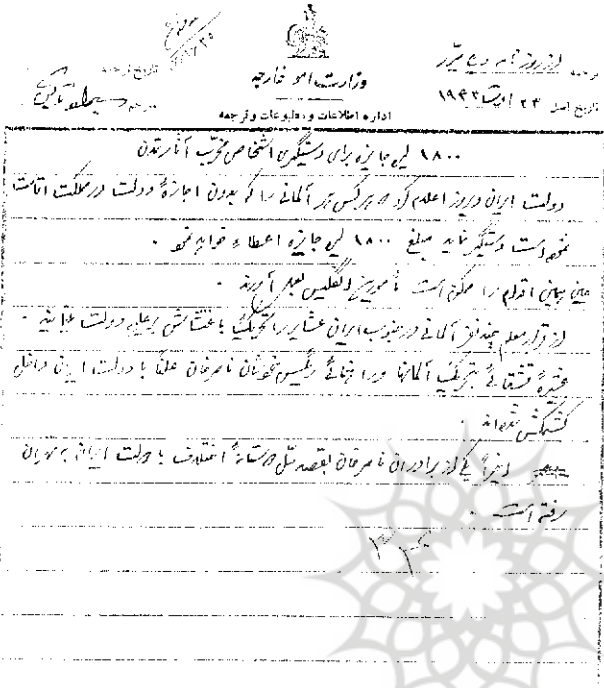 وزارت امور خارجه
اداره اطلاعات و مطبوعات و ترجمه
ترجمه از روزنامه
تاریخ اصل ۲۳ اوت ۱۹۴۳
تاریخ ترجمه
مترجم
۱۸۰۰ لی جایزه برای دستگیری اشخاص مخرب آثار تمدن
دولت ایران دیروز اعلام کرد که هر کس هر آلمانی را که بدون اجازهٔ دولت در مملکت اقامت
نموده است دستگیر نماید مبلغ ۱۸۰۰ لی جایزه اعطاء خواهد نمود .
عین همین اقدام را ممکن است مأمورین انگلیس بعمل آورند .
از قرار معلوم چند نفر آلمانی در جنوب ایران عشایر را تحریک باغتشاش بر علیه دولت
عشیرهٔ قشقائی بتحریک آلمانها و راهنمائی رئیس خودشان ناصرخان علناً با دولت ایران داخل
کشمکش شده‌اند .
اخیراً یکی از برادران ناصرخان بقصد حل دوستانهٔ اختلاف با دولت ایران به طهران
رفته است .
۳۴